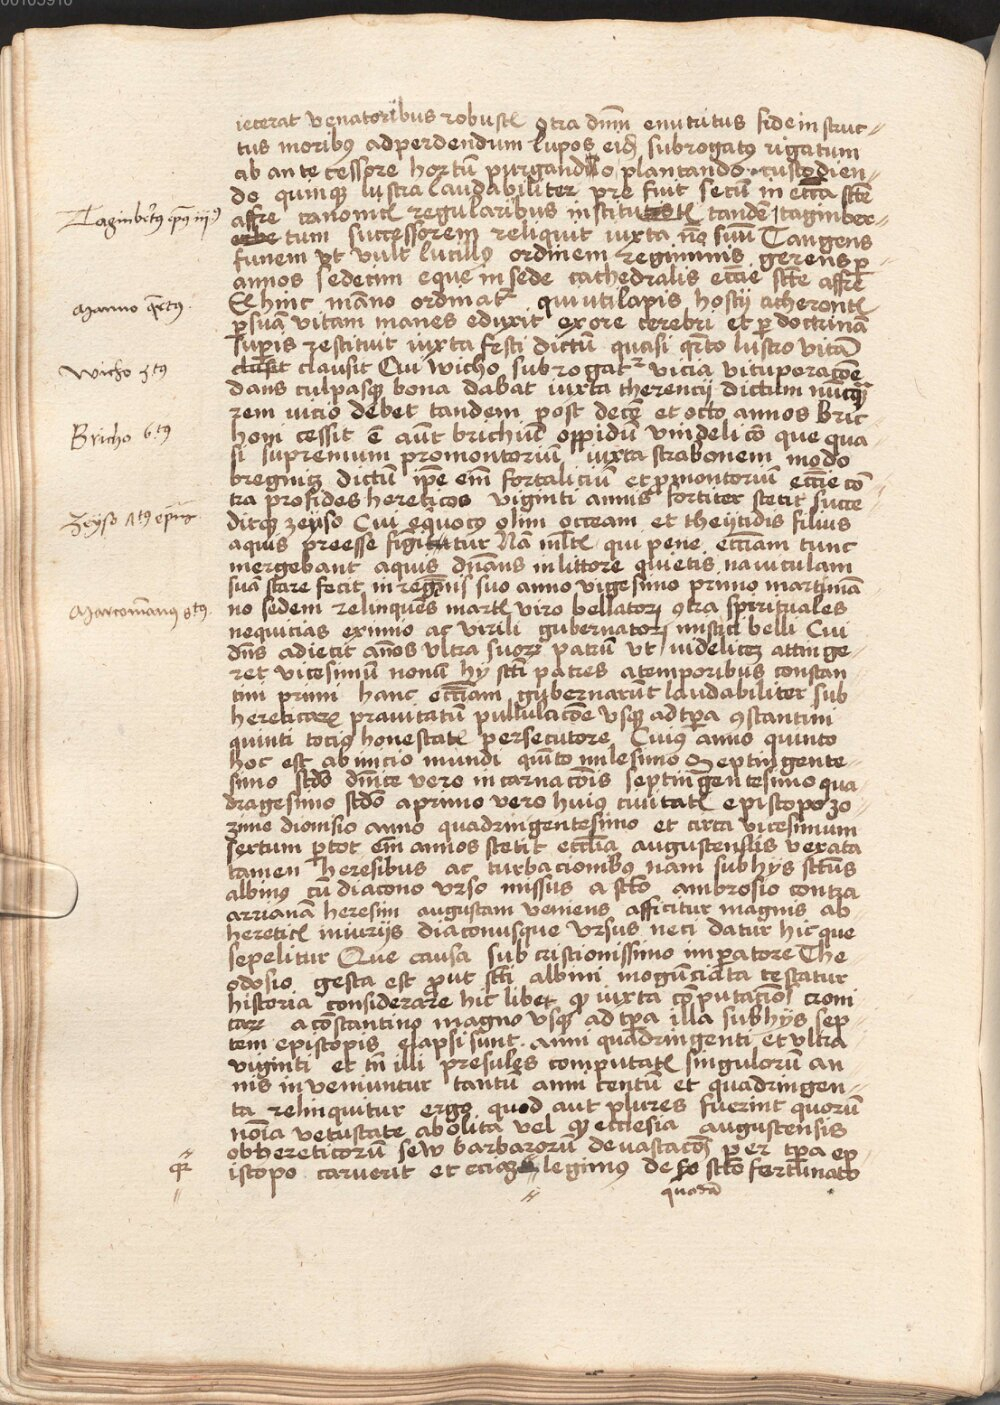 iecerat venatoribus robustꝭ ꝯtra dnm̄ enutritus fide instruc-
tus moribꝰ ad perdendum lupos eidē subrogatꝰ rigatum
ab ante cessore hortū purgando plantando custodien-
do quinqꝫ lustra laudabiliter pre fuit secū in ecc̄a scte
affre canonicꝭ regularibus institutꝭ tandē tagimber-
tum successorem reliquit iuxta nō suū Tangens
funem vt vult lucillꝰ ordinem regiminis gerens p
annos sedecim eque in sede cathedralis ecc̄ie scte affre
Ex hinc mano ordinatꝛ qui uti lapis hostij acherontꝭ
ꝑsuā vitam manes eduxit ex ore cerebri et ꝑ doctrinā
supis restituit iuxta festi dictū quasi qrto lustro vitā
clausit Cui wicho subrogatꝛ vicia vituperacōe
dans culpasqꝫ bona dabat iuxta therencij dictum nūcqꝫ
rem vicio debet tandem post decē et octo annos bric
honi cessit ē aūt brichiūᷤ oppidū vindelicō que qua
si supremum promontoriū iuxta strabonem modo
bregnitz dictū ipe em̄ fortaliciū et ꝓmontoriū ecc̄ie cō
tra ꝓfides hereticos viginti annis fortiter stetit succe
ditqꝫ zeyso Cui equocꝰ olim occeam et theytidis filius
aquis preesse fingitur Nā mltꝭ qui pene ecc̄iam tunc
mergebant aquis dn̄ans in littore quietis nauiculam
suā stare fecit in regnis suo anno vigesimo primo martinia
no sedem relinquēs martꝭ viro bellatorj ꝯtra spirituales
nequicias eximio ac virili gubernatorj mistici belli Cui
dn̄s adiecit anōs vltra suorꝫ patrū vt videlicet attinge-
ret vicesimū nonū hy scti patres a temporibus constan
tini primi hanc ecc̄iam gubernarūt laudabiliter sub
hereticarꝫ prauitatū pullulacōe vsqꝫ ad tꝑa ꝯstantini
quinti tociꝰ honestatꝭ persecutore Cuiꝰ anno quinto
hoc est ab inicio mundi quīto milesimo Septingente-
simo scdō dnīce vero incarnacōis septingentesimo qua
dragesimo scdō a primo vero huiꝰ ciuitatꝭ episcopo zo
zimo dionisio anno quadringentesimo et circa vicesimum
sextum ꝑ tot em̄ annos stetit ecclīa augustensis vexata
tamen heresibus ac turbacionibꝰ nam sub hys sctūs
albinꝰ cū diacono vrso missus a sctō ambrosio contra
arrianā heresim augustam veniens afficitur magnis ab
hereticꝭ iniurijs diaconusque vrsus neci datur hic que
sepelitur Que causa sub cristionissimo imꝑatore The
odosio gesta est ꝓut scti albini mogūciata testatur
historia considerare hic libet qꝫ iuxta cōputacōeꝫ croni
carꝫ a cōstantino magno vsqꝫ ad tꝑa illa sub hys sep
tem episcopis elapsi sunt anni quadringenti et vltra
viginti et tn̄ illi presules computatꝭ singulorū an
nis inveniuntur tantū anni centū et quadringen-
ta relinquitur ergo quod aut plures fuerint quorū
noīa vetustate abolita vel qꝫ ecclesia augustensis
ob hereticorū sew barbarorū deuastacōeꝫ per tꝑa ep
iscopo caruerit et eciā legimꝰ de sctō fortunato
quodā
Tagimbertꝰ epꝰ iiijꝰ
Manno qrtꝰ
Wicho 5tꝰ
Bricho 6tꝰ
Zeyso 7tꝰ epūs
Marcomānꝰ 8tꝰ